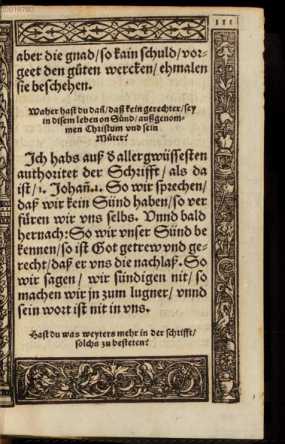 aber die gnad/ so kain schuld/ vor⸗
geet den gůten wercken/ ehmalen
sie beschehen.
Waher hast du dañ/ daß kein gerechter/ sey
in disem leben on Sünd/ außgenom⸗
men Christum vnd sein
Můter?
Ich habs auß d allergwüssesten
authoritet der Schrifft/ als da
ist/ 1. Johañ. 1. So wir sprechen/
daß wir kein Sünd haben/ so ver
füren wir vns selbs. Vnnd bald
hernach: So wir vnser Sünd be
kennen/ so ist Got getrew vnd ge⸗
recht/ daß er vns die nachlaß. So
wir sagen/ wir sündigen nit/ so
machen wir jn zum lugner/ vnnd
sein wort ist nit in vns.
Hast du was weyters mehr in der schrifft/
solchs zu besteten?